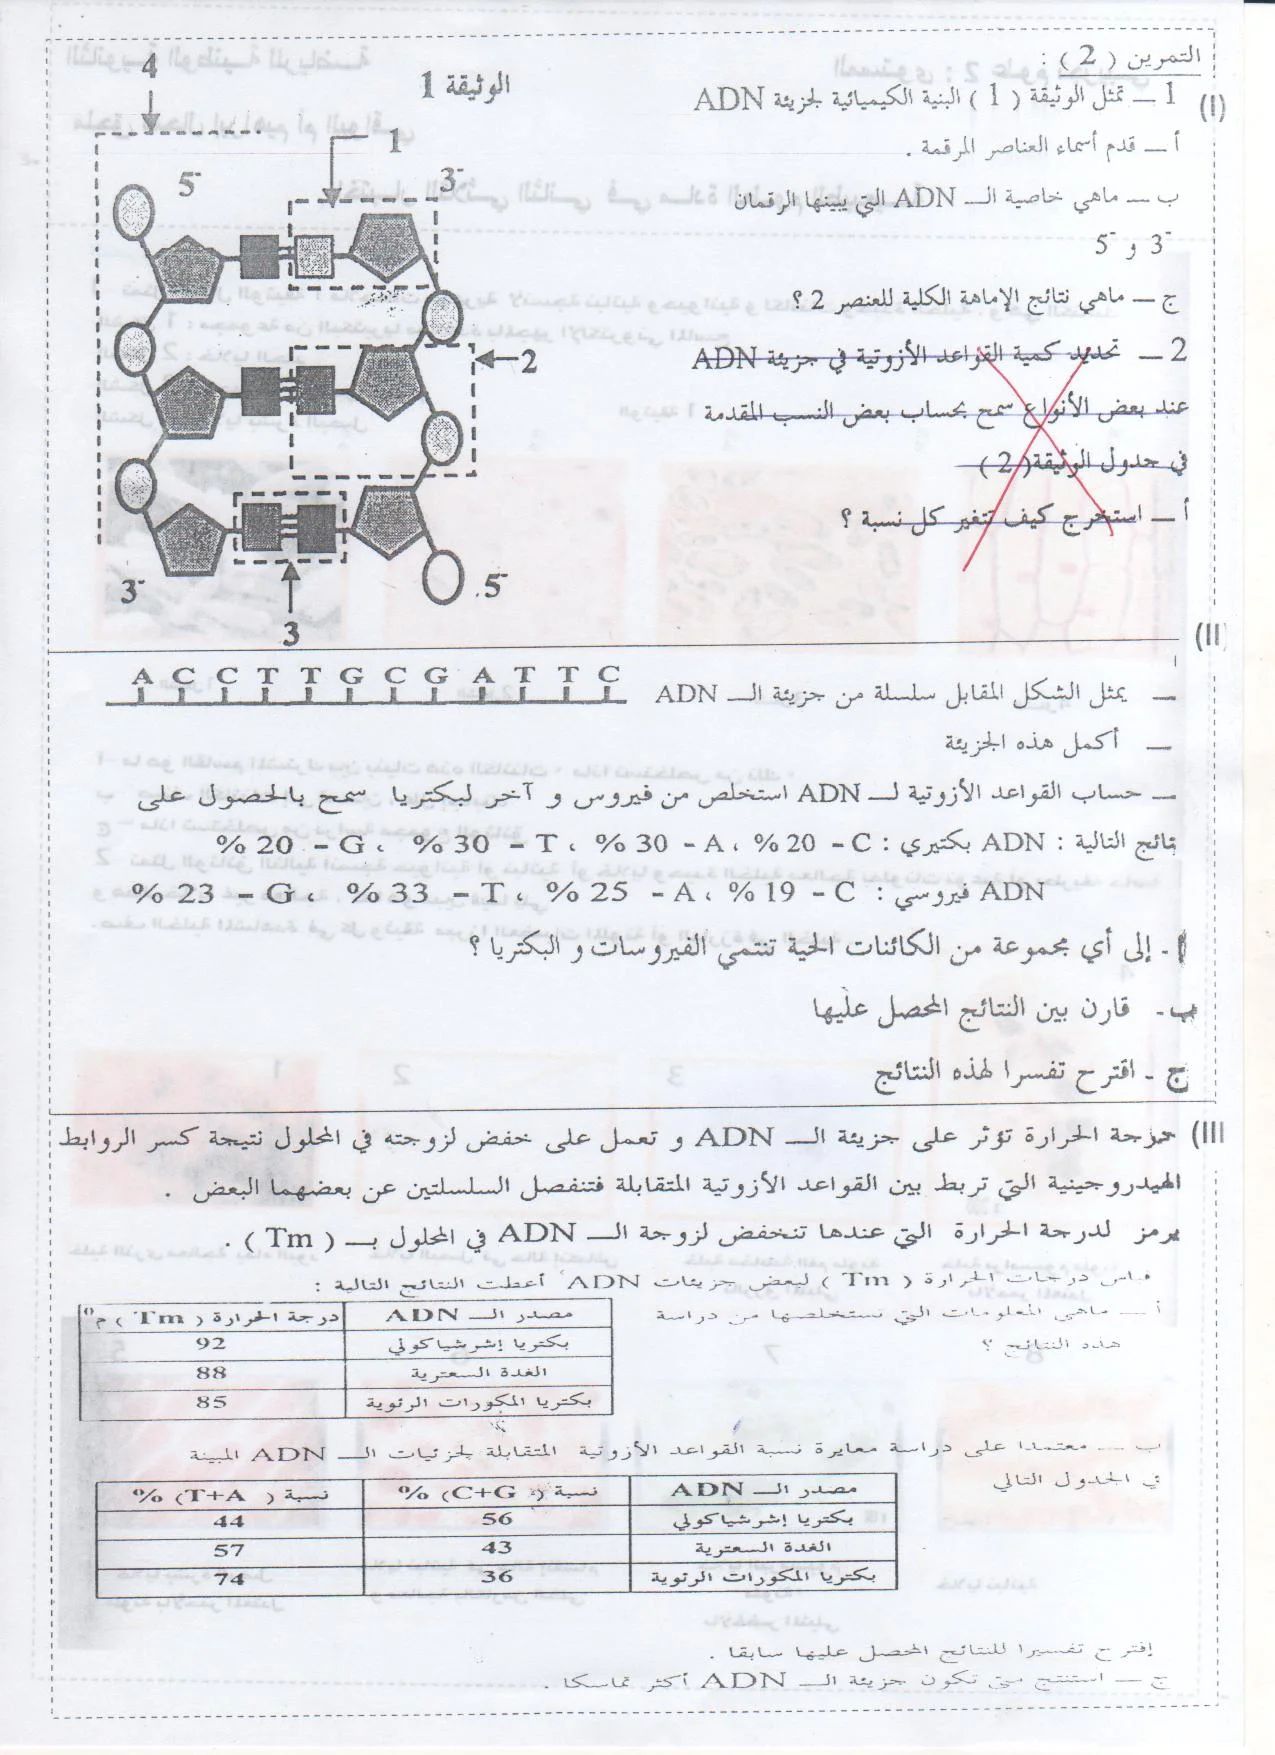 التمرين ( 2 ) :
(I) 1 ــ تمثل الوثيقة ( 1 ) البنية الكيميائية لجزيئة ADN
أ ــ قدم أسماء العناصر المرقمة .
ب ــ ماهي خاصية الــ ADN التي يبينها الرقمان
3- و 5-
ج ــ ماهي نتائج الإماهة الكلية للعنصر 2 ؟
2 ــ تحديد كمية القواعد الأزوتية في جزيئة ADN
عند بعض الأنواع سمح بحساب بعض النسب المقدمة
في جدول الوثيقة( 2 )
أ ــ استخرج كيف تتغير كل نسبة ؟
الوثيقة 1
4
1
5-
3-
2
3-
5-
3
(II)
A C C T T G C G A T T C
ــ يمثل الشكل المقابل سلسلة من جزيئة الــ ADN
ــ أكمل هذه الجزيئة
ــ حساب القواعد الأزوتية لــ ADN استخلص من فيروس و آخر لبكتريا سمح بالحصول على
نتائج التالية : ADN بكتيري : C - 20 % ، A - 30 % ، T - 30 % ، G - 20 %
ADN فيروسي : C - 19 % ، A - 25 % ، T - 33 % ، G - 23 %
أ - إلى أي مجموعة من الكائنات الحية تنتمي الفيروسات و البكتريا ؟
ب - قارن بين النتائج المحصل عليها
ج - اقترح تفسرا لهذه النتائج
(III) درجة الحرارة تؤثر على جزيئة الــ ADN و تعمل على خفض لزوجته في المحلول نتيجة كسر الروابط
الهيدروجينية التي تربط بين القواعد الأزوتية المتقابلة فتنفصل السلسلتين عن بعضهما البعض .
يرمز لدرجة الحرارة التي عندها تنخفض لزوجة الــ ADN في المحلول بــ ( Tm ) .
قياس درجات الحرارة ( Tm ) لبعض جزيئات ADN أعطت النتائج التالية :
أ ــ ماهي المعلومات التي تستخلصها من دراسة
هذه النتائج ؟
مصدر الــ ADN درجة الحرارة ( Tm ) م0
بكتريا إشرشياكولي 92
الغدة السعترية 88
بكتريا المكورات الرئوية 85
ب ــ معتمدا على دراسة معايرة نسبة القواعد الأزوتية المتقابلة لجزئيات الــ ADN المبينة
في الجدول التالي
مصدر الــ ADN نسبة (C+G) % نسبة (T+A) %
بكتريا إشرشياكولي 56 44
الغدة السعترية 43 57
بكتريا المكورات الرئوية 36 74
إقترح تفسيرا للنتائج المحصل عليها سابقا .
ج ــ استنتج متى تكون جزيئة الــ ADN أكثر تماسكا .